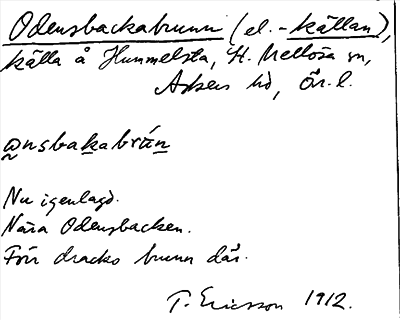 Odensbackabrunn (el. -källan),
källa å Hummelsta, St. Mellösa sn,
Askers hd, Ör. l.
ωnsbakabrún
Nu igenlagd.
Nära Odensbacken.
Förr dracko brunn där.
T. Ericsson 1912.